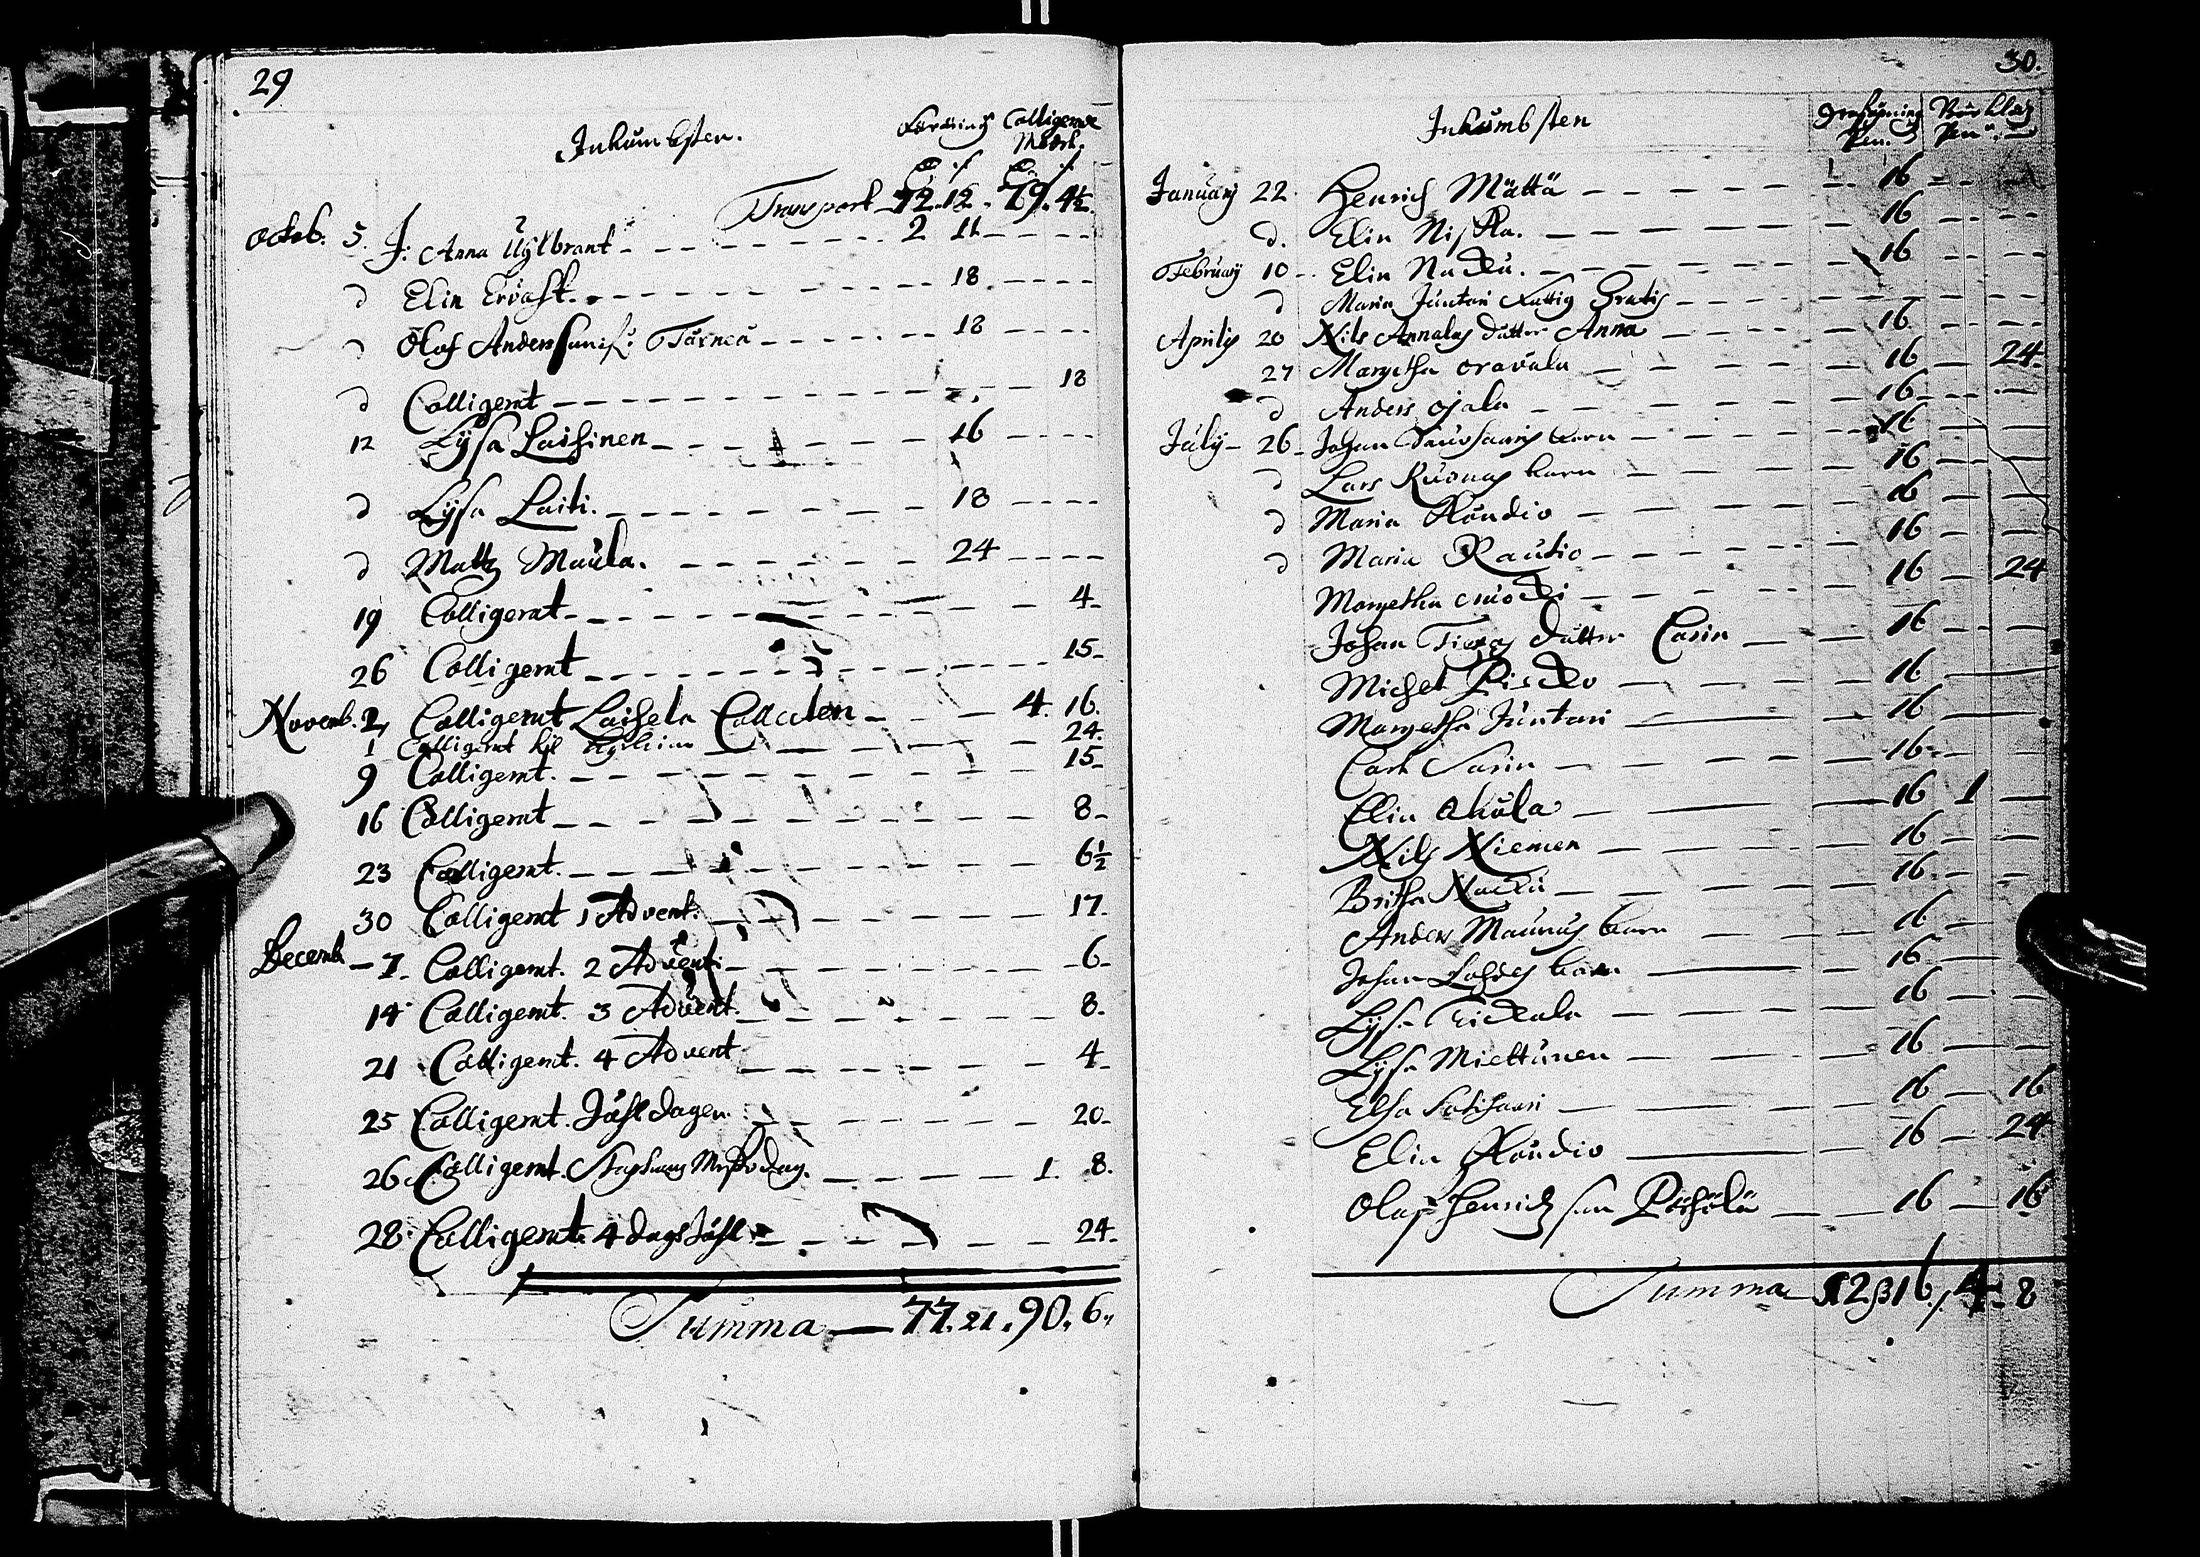 29
Inkumbsten. Colligerat
Medh.
Transport 72. 12. 79. 4½.
Octob. 5. J: Anna 2 11
d Elin Ervast. 18.
d Olof Anderssun 18
d Colligerat 18
12 Lÿsa Laihinen 16
d Lÿsa Laiti. 18
d Matz Maùla. 24
19 Colligerat 4
26 Colligerat 15
Novemb. 2, Colligerat Laihela Collecten 4. 16.
1 Colligerat til 24.
9 Colligerat. 15
16 Colligerat 8
23 Colligerat. 6½
30 Colligerat 1 Advent. 17.
Decemb 7. Colligerat. 2 Advent. 6
14 Colligerat. 3 Advent. 8.
21 Colligerat. 4 Advent 4
25 Colligerat. Juhl dagen. 20
26 Colligerat. 1. 8.
28. Colligerat. 4 dags Juhl 24
Summa 77. 21. 90. 6.
30.
Inkumbsten
Januarij 22. Henrich Mättä 16
d. Elin Niska. 16
Februarij 10 Elin Nacku. 16
d Maria Juntari fattig Gratis
Aprilis 20 Nils Annalas dotter Anna 16
27 Margetha oravala 16 24.
d Anders ojala 16
Julij 26 Johan barn 16
d Lars Ruonas barn 16
d Maria 16
d Maria Rautio 16
Margetha 16 24
Johan dotter Carin 16
Michel 16
Margetha Juntari 16
Carl Sarin 16
Elin Akùla 16 1
Nils Niemen 16
Britha Nacku 16
Anders Maunus barn 16
Johan barn 16
Lÿsa 16
Lÿsa Miettunen 16
Elsa 16 16
Elin 16 24
Olof Henrichssun 16 16
Summa 12 16. 4 8